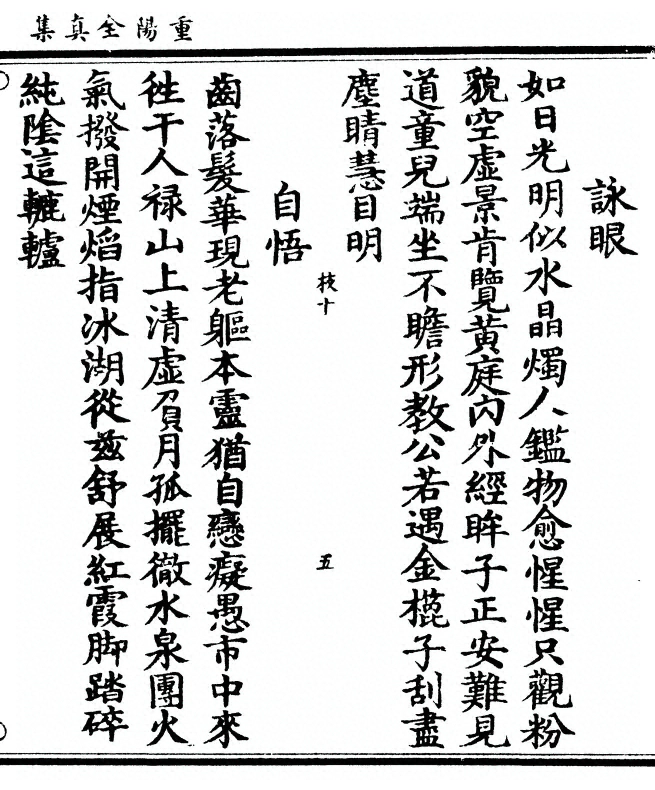 重陽全真集
詠眼
如日光明似水晶燭人鑑物愈惺惺只觀粉
貌空虛景肯覽黃庭內外經眸子正安難見
道童兒端坐不瞻形教公若遇金棍子刮盡
塵睛慧目明
枝十
五
自悟
齒落髮華現老軀本靈猶自戀癡愚市中來
徃干人禄山上清虛負月孤擺徹水泉團火
氣撥開煙焰指冰湖從兹舒展紅霞脚踏碎
純陰這轆轤